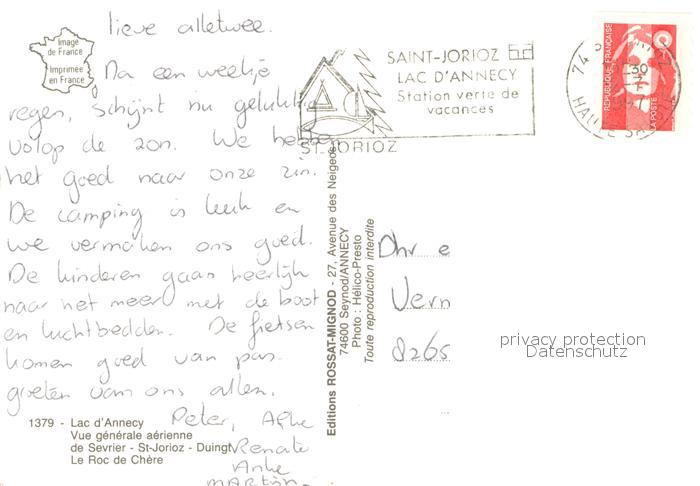 lieve alletwee.
Na een weekje
regen, schijnt nu gelukkig
volop de zon. We hebben
het goed naar onze zin.
De camping is leuk en
we vermaken ons goed.
De kinderen gaan heerlijk
naar het meer met de boot
en luchtbedden. De fietsen
komen goed van pas.
groeten van ons allen.
Peter,
Renate
Anke
MARTIJN
Image
de France
Imprimée
en France
1379 - Lac d'Annecy
Vue générale aérienne
de Sevrier - St-Jorioz - Duingt
Le Roc de Chère
Editions ROSSAT-MIGNOD - 27, Avenue des Neigeos
74600 Seynod/ANNECY
Photo : Hélico-Presto
Toute reproduction interdite
SAINT-JORIOZ
LAC D'ANNECY
Station verte de
vacances
ST-JORIOZ
74
HAUTE SAVOIE
REPUBLIQUE FRANÇAISE
LA POSTE
Dhr e
Vern
8265
privacy protection
Datenschutz